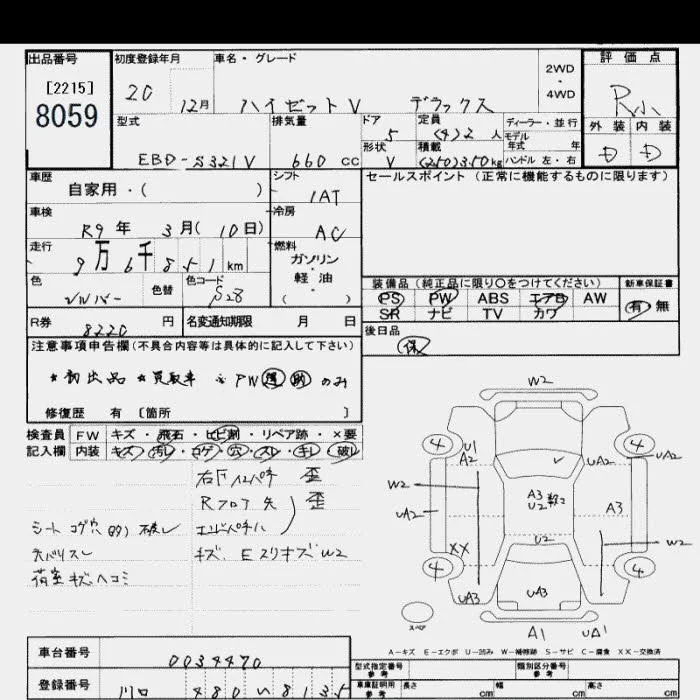 出品番号
[2215]
8059
初度登録年月
20 12月
車名・グレード
ハイゼットV デラックス
2WD
・
4WD
評価点
R小
外装 内装
D D
型式
EBD-S321V
排気量
660 cc
ドア
5
形状
V
定員
(4)2 人
積載
(250)350kg
ディーラー・並行
モデル
年式 年
ハンドル 左・右
車歴
自家用・( )
シフト
IAT
セールスポイント(正常に機能するものに限ります)
車検
R9年 3月(10日)
冷房
AC
走行
9万6千851km
燃料
ガソリン
・
軽油
( )
色
シルバー
色替
色コード
S28
装備品(純正品に限り○をつけてください)
PS PW ABS エアB AW
SR ナビ TV カワ
新車保証書
有 無
R券
8220円
名変通知期限 月 日
後日品
保
注意事項申告欄(不具合内容等は具体的に記入して下さい)
★初出品 ★買取車 ※PW運助のみ
修復歴 有 〔箇所 〕
検査員
記入欄
FW キズ・飛石・ヒビ割・リペア跡・×要
内装 キズ・汚レ・コゲ・穴・スレ・キレ・破レ
右下インパネ 歪
Rフロア先 歪
エンドパネル
シート コゲ穴 破レ
キズ、Eスリキズ W2
荷室キズ、ヘコミ
W2
4 4
U1
A2
UA2
UA2
W2
UA2
A3
U2
A3
W2
U2
XX
4 4
UA3
UA3
スペア
A1 UA1
A-キズ E-エクボ U-凹み W-補修跡 S-サビ C-腐食 XX-交換済
車台番号
0034470
登録番号
川口 480 い 8135
型式指定番号
参考
類別区分番号
参考
車庫証明用
参考
長さ cm
幅 cm
高さ cm